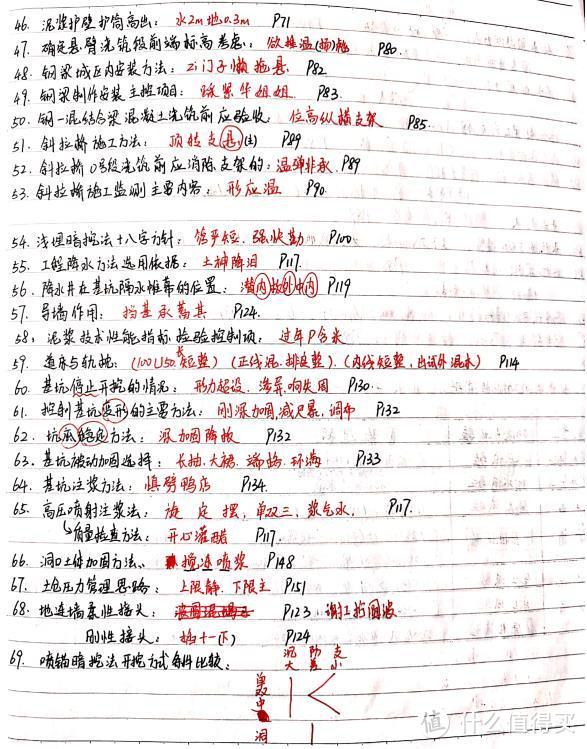 46. 泥浆护壁护筒高出：水2m地0.3m P71
47. 确定悬臂浇筑段前端标高考虑：欲挂温(扬)能 P80.
48. 钢梁城区内安装方法：门子懒拖悬 P82
49. 钢梁制作安装主控项目： P83.
50. 钢-混结合梁混凝土浇筑前应验收：位高纵横支架 P85.
51. 斜拉桥施工方法：顶转支悬(主) P89
52. 斜拉桥0号段浇筑前应消除支架的：温弹非承 P89
53. 斜拉桥施工监测主要内容：形应温 P90.
54. 浅埋暗挖法十八字方针：管严短.强快勤 P100
55. 工程降水方法选用依据：土神降泪 P117.
56. 降水井在基坑隔水帷幕的位置：内 外 内 P119
57. 导墙作用：挡基承蓄其 P124.
58. 泥浆技术性能指标检验控制项：过年P含米
59. 道床与轨枕：(100U50.长短整)(正线混.排良整).(内线短整,出试外混木) P114
60. 基坑停止开挖的情况：形力超设.渗异.响失周 P130.
61. 控制基坑变形的主要方法：刚深加固,减尺暴,调布 P132
62. 坑底稳定方法：深加固降板 P132
63. 基坑被动加固选择：长抽.大裙.端墩.环满 P133
64. 基坑注浆方法：慎劈鸭店 P134.
65. 高压喷射注浆法：旋定摆,单双三,浆气水, P117.
质量检查方法：开心灌 P117.
66. 洞口土体加固方法：搅冻喷浆 P148
67. 土仓压力管理思路：上限静.下限主 P151
68. 地连墙柔性接头： P123 工
刚性接头：十一(下) P124
69. 喷锚暗挖法开挖方式条件比较：沉 防 支
大 差 小
单
双
中
洞
值 什么值得买